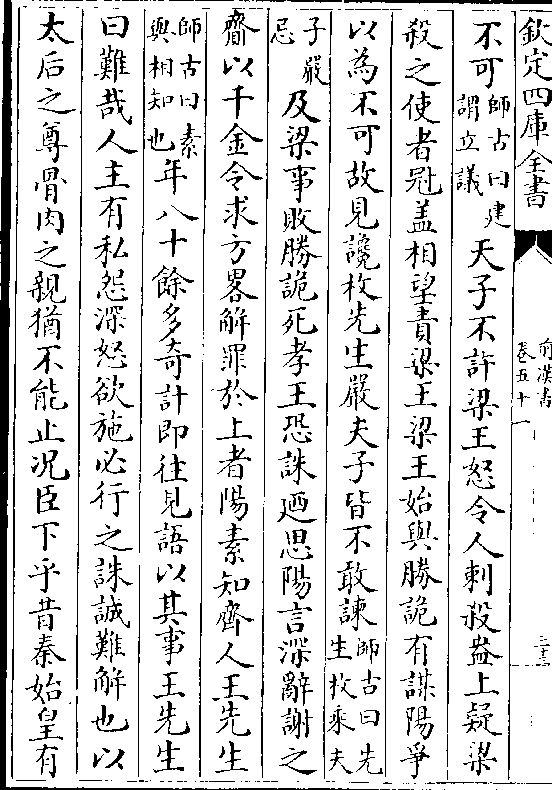 欽定四庫全書
前漢書
卷五十一
二十三
不可師古曰建謂立議天子不許梁王怒令人刺殺盎上疑梁
殺之使者冠蓋相望責梁王梁王始與勝詭有謀陽爭
以為不可故見讒枚先生嚴夫子皆不敢諫師古曰先生枚乘夫
子嚴忌及梁事敗勝詭死孝王恐誅廼思陽言深辭謝之
齎以千金令求方畧解罪於上者陽素知齊人王先生
師古曰素與相知也年八十餘多奇計即往見語以其事王先生
曰難哉人主有私怨深怒欲施必行之誅誠難解也以
太后之尊骨肉之親猶不能止况臣下乎昔秦始皇有